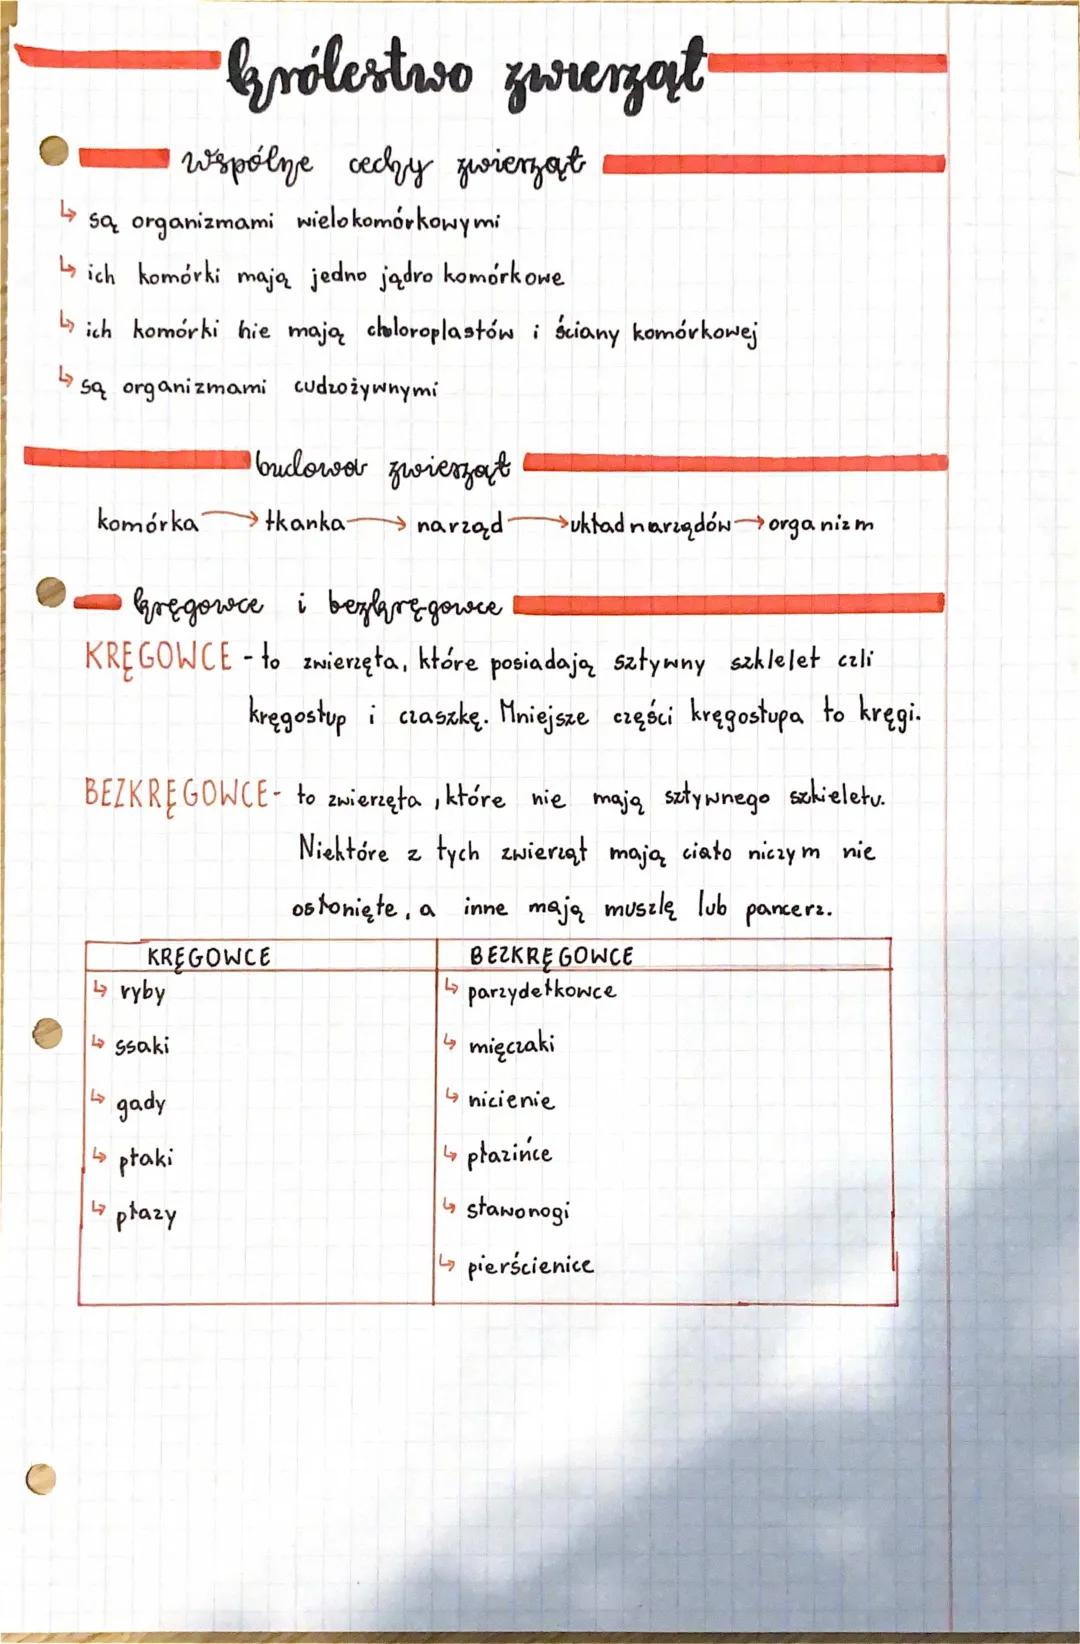 królestwo zwierząt
wspólne cechy zwierząt
↳ są organizmami wielokomórkowymi
↳ ich komórki mają jedno jądro komórkowe
↳ ich komórki nie mają chloroplastów i ściany komórkowej
↳ są organizmami cudzożywnymi
budowa zwierząt
komórka → tkanka → narząd → układ narządów → organizm
kręgowce i bezkręgowce
KRĘGOWCE - to zwierzęta, które posiadają sztywny szklelet czli
kręgosłup i czaszkę. Mniejsze części kręgosłupa to kręgi.
BEZKRĘGOWCE - to zwierzęta, które nie mają sztywnego szkieletu.
Niektóre z tych zwierząt mają ciało niczym nie
osłonięte, a inne mają muszlę lub pancerz.
KRĘGOWCE BEZKRĘGOWCE
↳ ryby ↳ parzydełkowce
↳ ssaki ↳ mięczaki
↳ gady ↳ nicienie
↳ ptaki ↳ płazińce
↳ płazy ↳ stawonogi
↳ pierścienice